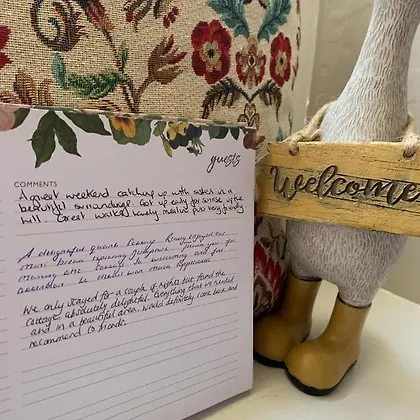 guests
COMMENTS
A great weekend catching up with sister in a
beautiful surroundings. Got up early for sunrise up the
hill. Great walks & lovely pub very friendly
A delightful quaint Cottage. Really enjoyed our
for
making the Cottage so welcoming and for
much appreciated.
We only stayed for a couple of nights but found the
cottage absolutely delightful. Everything that we needed
and in a beautiful area. Would definitely come back and
recommend to friends
Welcome